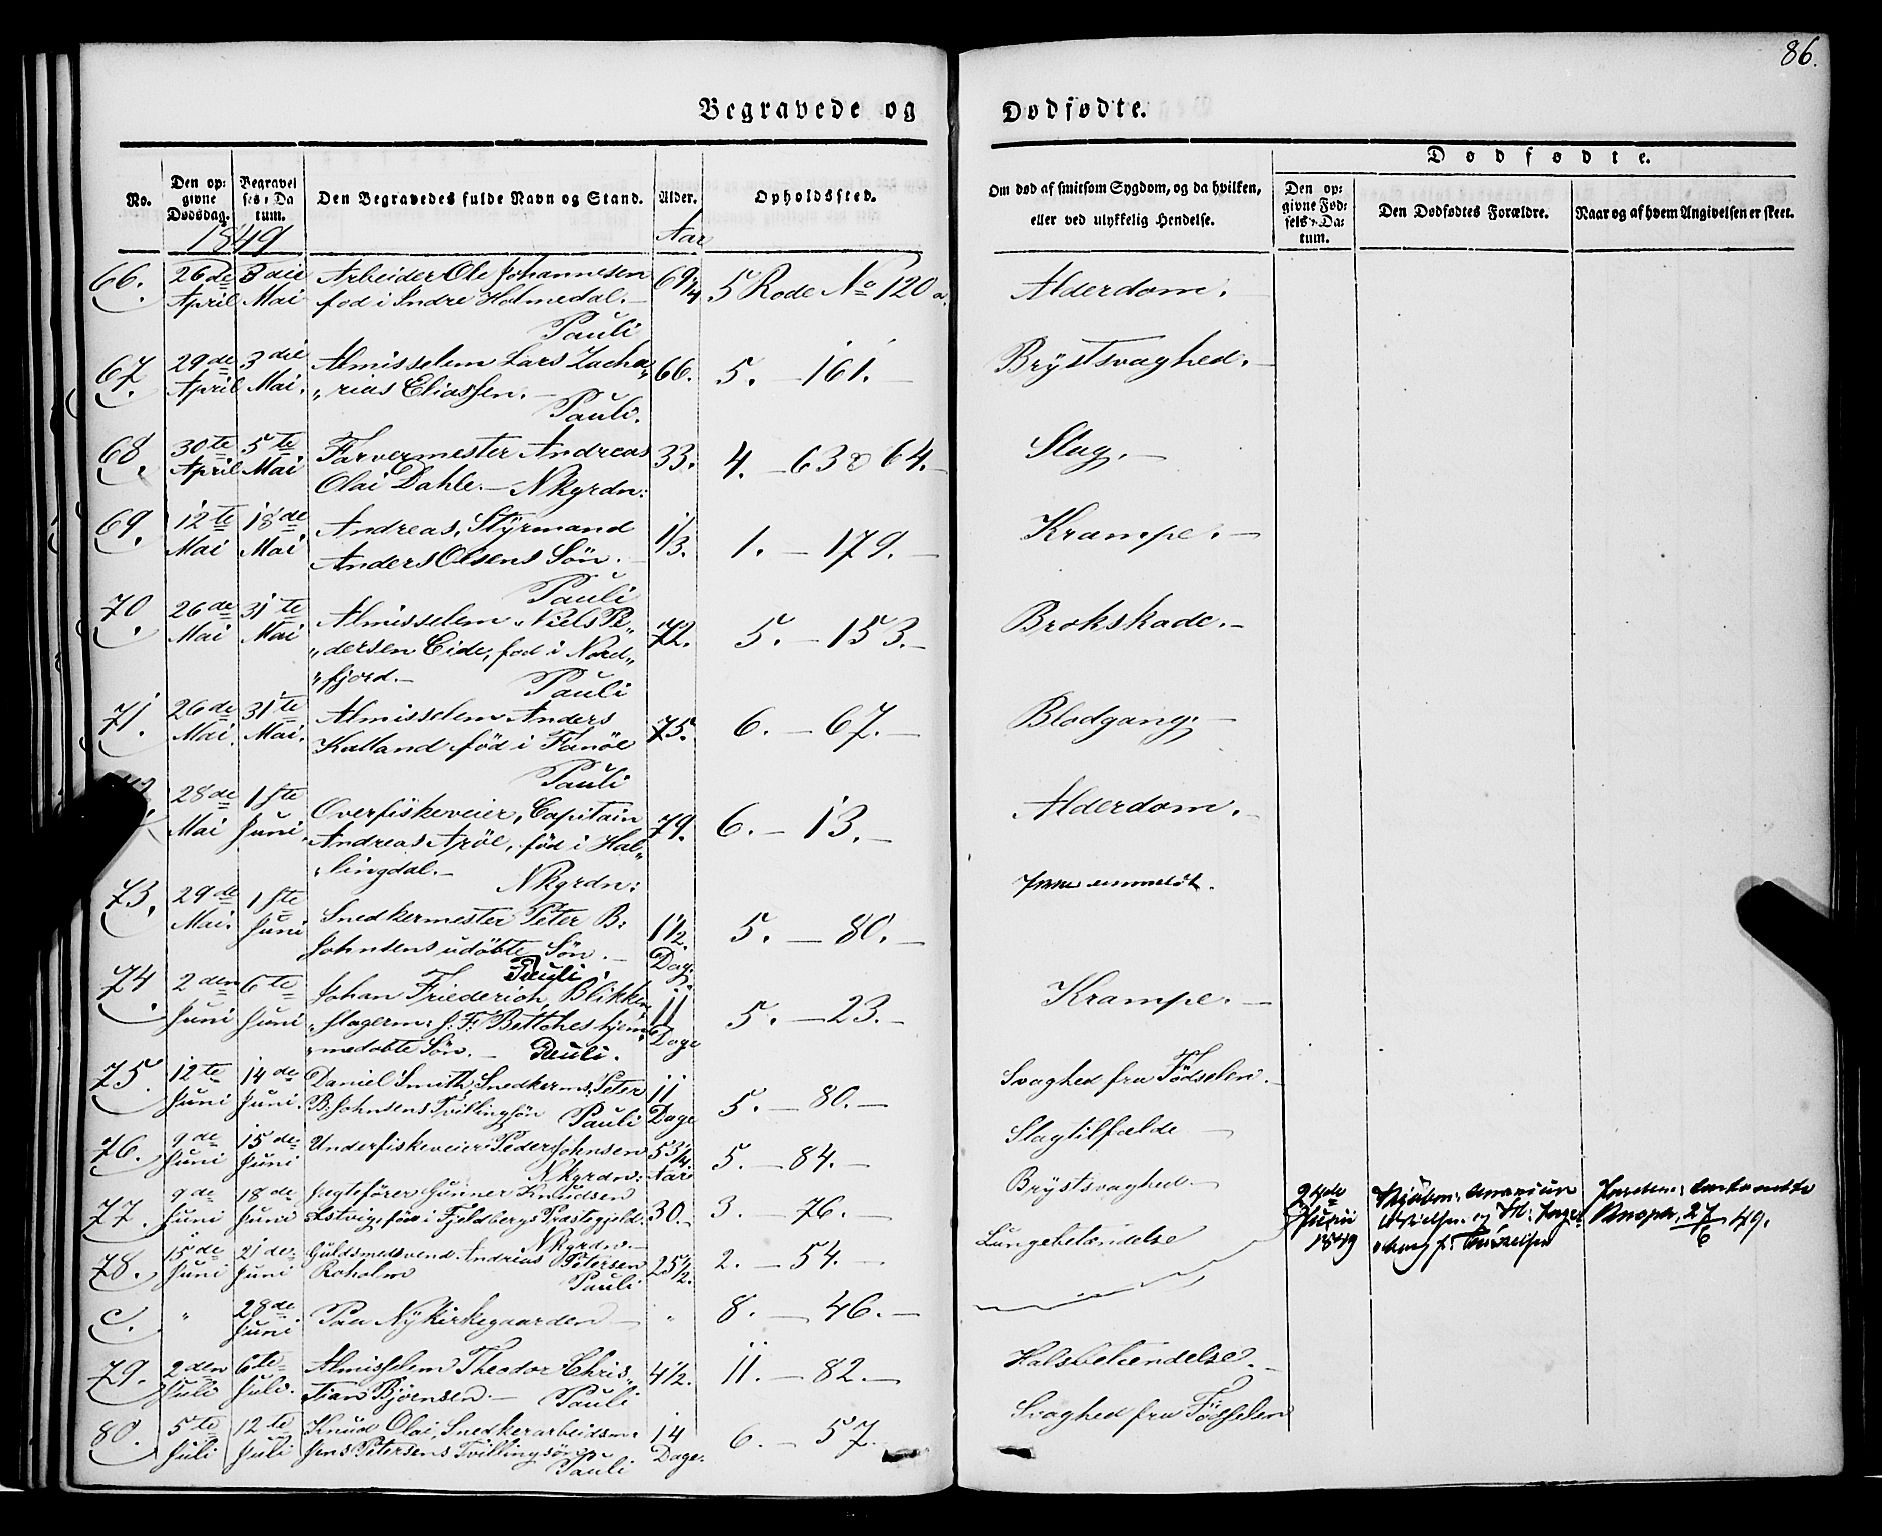 86.
Begravede og Dødfødte.
No.
Den op-
givne
Dødsdag.
Begravel
ses-Da
tum.
Den Begravedes fulde Navn og Stand.
Alder.
Opholdssted.
Om død af smitsom Sygdom, og da hvilken,
eller ved ulykkelig Hendelse.
Dødfødte.
Den op-
givne Fød-
sels-Da-
tum.
Den Dødfødtes Forældre.
Naar og af hvem Angivelsen er skeet.
1849
Aar
66. 26de 3die Arbeider Ole Johannesen 69¼ 5 Rode No 120 a. Alderdom.
April Mai fød i Indre Holmedal.
Pauli
67. 29de 3die Almisselem Lars Zacha„ 66. 5. — 161. Brÿstsvaghed.
April Mai. „rias Eliassen.
Pauli.
68. 30te 5te Farvermester Andreas 33. 4. — 63 & 64. Slag.
April Mai Olai Dahle. — Nkgrdn:
69. 12te 18de Andreas, Stÿrmand 1/3. 1. — 179. Krampe.
Mai Mai Anders Olsens Søn.
Pauli
70. 26de 31te Almisselem Niels Pe„ 72. 5. — 153. Brokskade.
Mai Mai „dersen Eide, fød i Nord„
„fjord.
Pauli
71. 26de 31te Almisselem Anders 75. 6. — 67. Blodgang.
Mai. Mai. Kalland fød i Fanöe
Pauli
28de 1ste Overfiskeveier, Capitain 79. 6. — 13. Alderdom.
Mai Juni. Andreas, fød i Hal„
„lingdal.
Nkgrdn:
73. 29de 1ste Snedkermester Peter B: 1½. 5. — 80. Ikke anmeldt.
Mai. Juni Johnsens udöbte Søn. Dag.
Pauli.
74. 2den 6te Johan Friederich, Blikken„ 11 5. — 23. Krampe.
Juni Juni „slagerm: J: F: Bøttches hjem„ Dage
„medöbte Søn. — Pauli.
75. 12te 14de Daniel Smith, Snedkerms. Peter 11 5. — 80. Svaghed fra Fødselen.
Juni Juni. B: Johnsens Tvillingsøn Pauli Dage
76. 9de 15de Underfiskeveier Peder Johnsen 53¼ 5. — 84. Slagtilfælde
Juni Juni Nkgrdn: Aar
77. 9de 18de Jægtefører Gunner Knudsen 30. 3. — 76. Brÿstsvaghed.
Juni Juni fød i Fjeldbergs Præstegjeld.
Nkgrdn.
24de
Juni
1849
27/6 49.
78. 15de 21de Guldsmedsvend. Andreas Petersen 25½. 2. — 54. Lungebetændelse
Juni Juni Roholm Pauli
c. „ 28de Paa Nÿkirkegaarden „ 8. — 46.
Juni
79. 2den 6te Almisselem Theodor Chris„ 4½. 11. — 82. Halsbetændelse.
Juli Juli. tian Bjørnsen. — Pauli
80. 5te 12te Knud Olai, Snedkerarbeidsm: 14 6. — 57. Svaghed fra Fødselen
Juli Juli Jens Petersens Tvillingsøn Dage.
Pauli